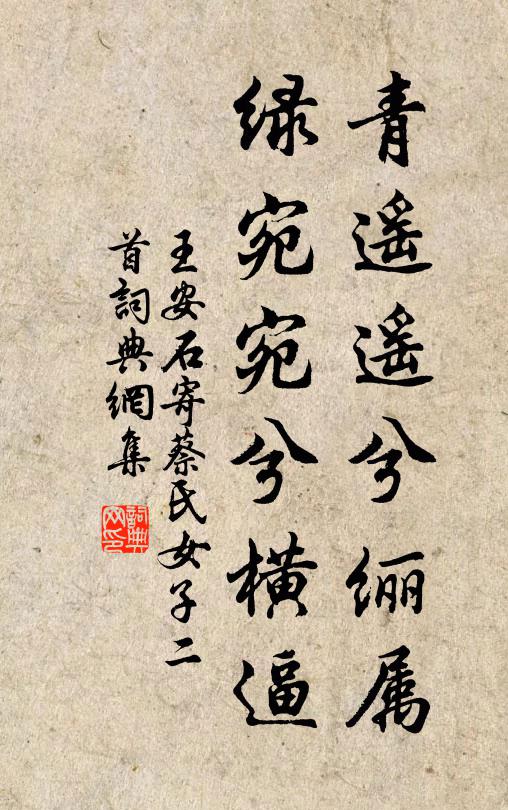 青遥遥兮纚属
绿宛宛兮横逼
王安石寄蔡氏女子二
首詞典網集
詞典網印